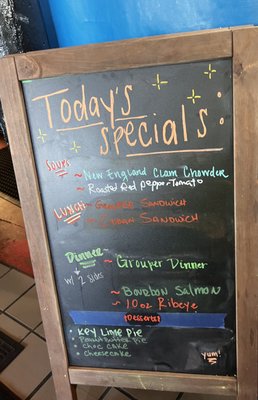 Today's
specials:
Soup
~ New England Clam Chowder
~ Roasted Red Pepper Tomato
LUNCH ~ Grouper Sandwich
~ Cuban Sandwich
Dinner
~ Grouper Dinner
w/ 2 sides
~ Bourbon Salmon
~ 10oz Ribeye
Desserts
* Key Lime Pie
* Peanut Butter Pie
* Choc Cake
* Cheesecake
yum!